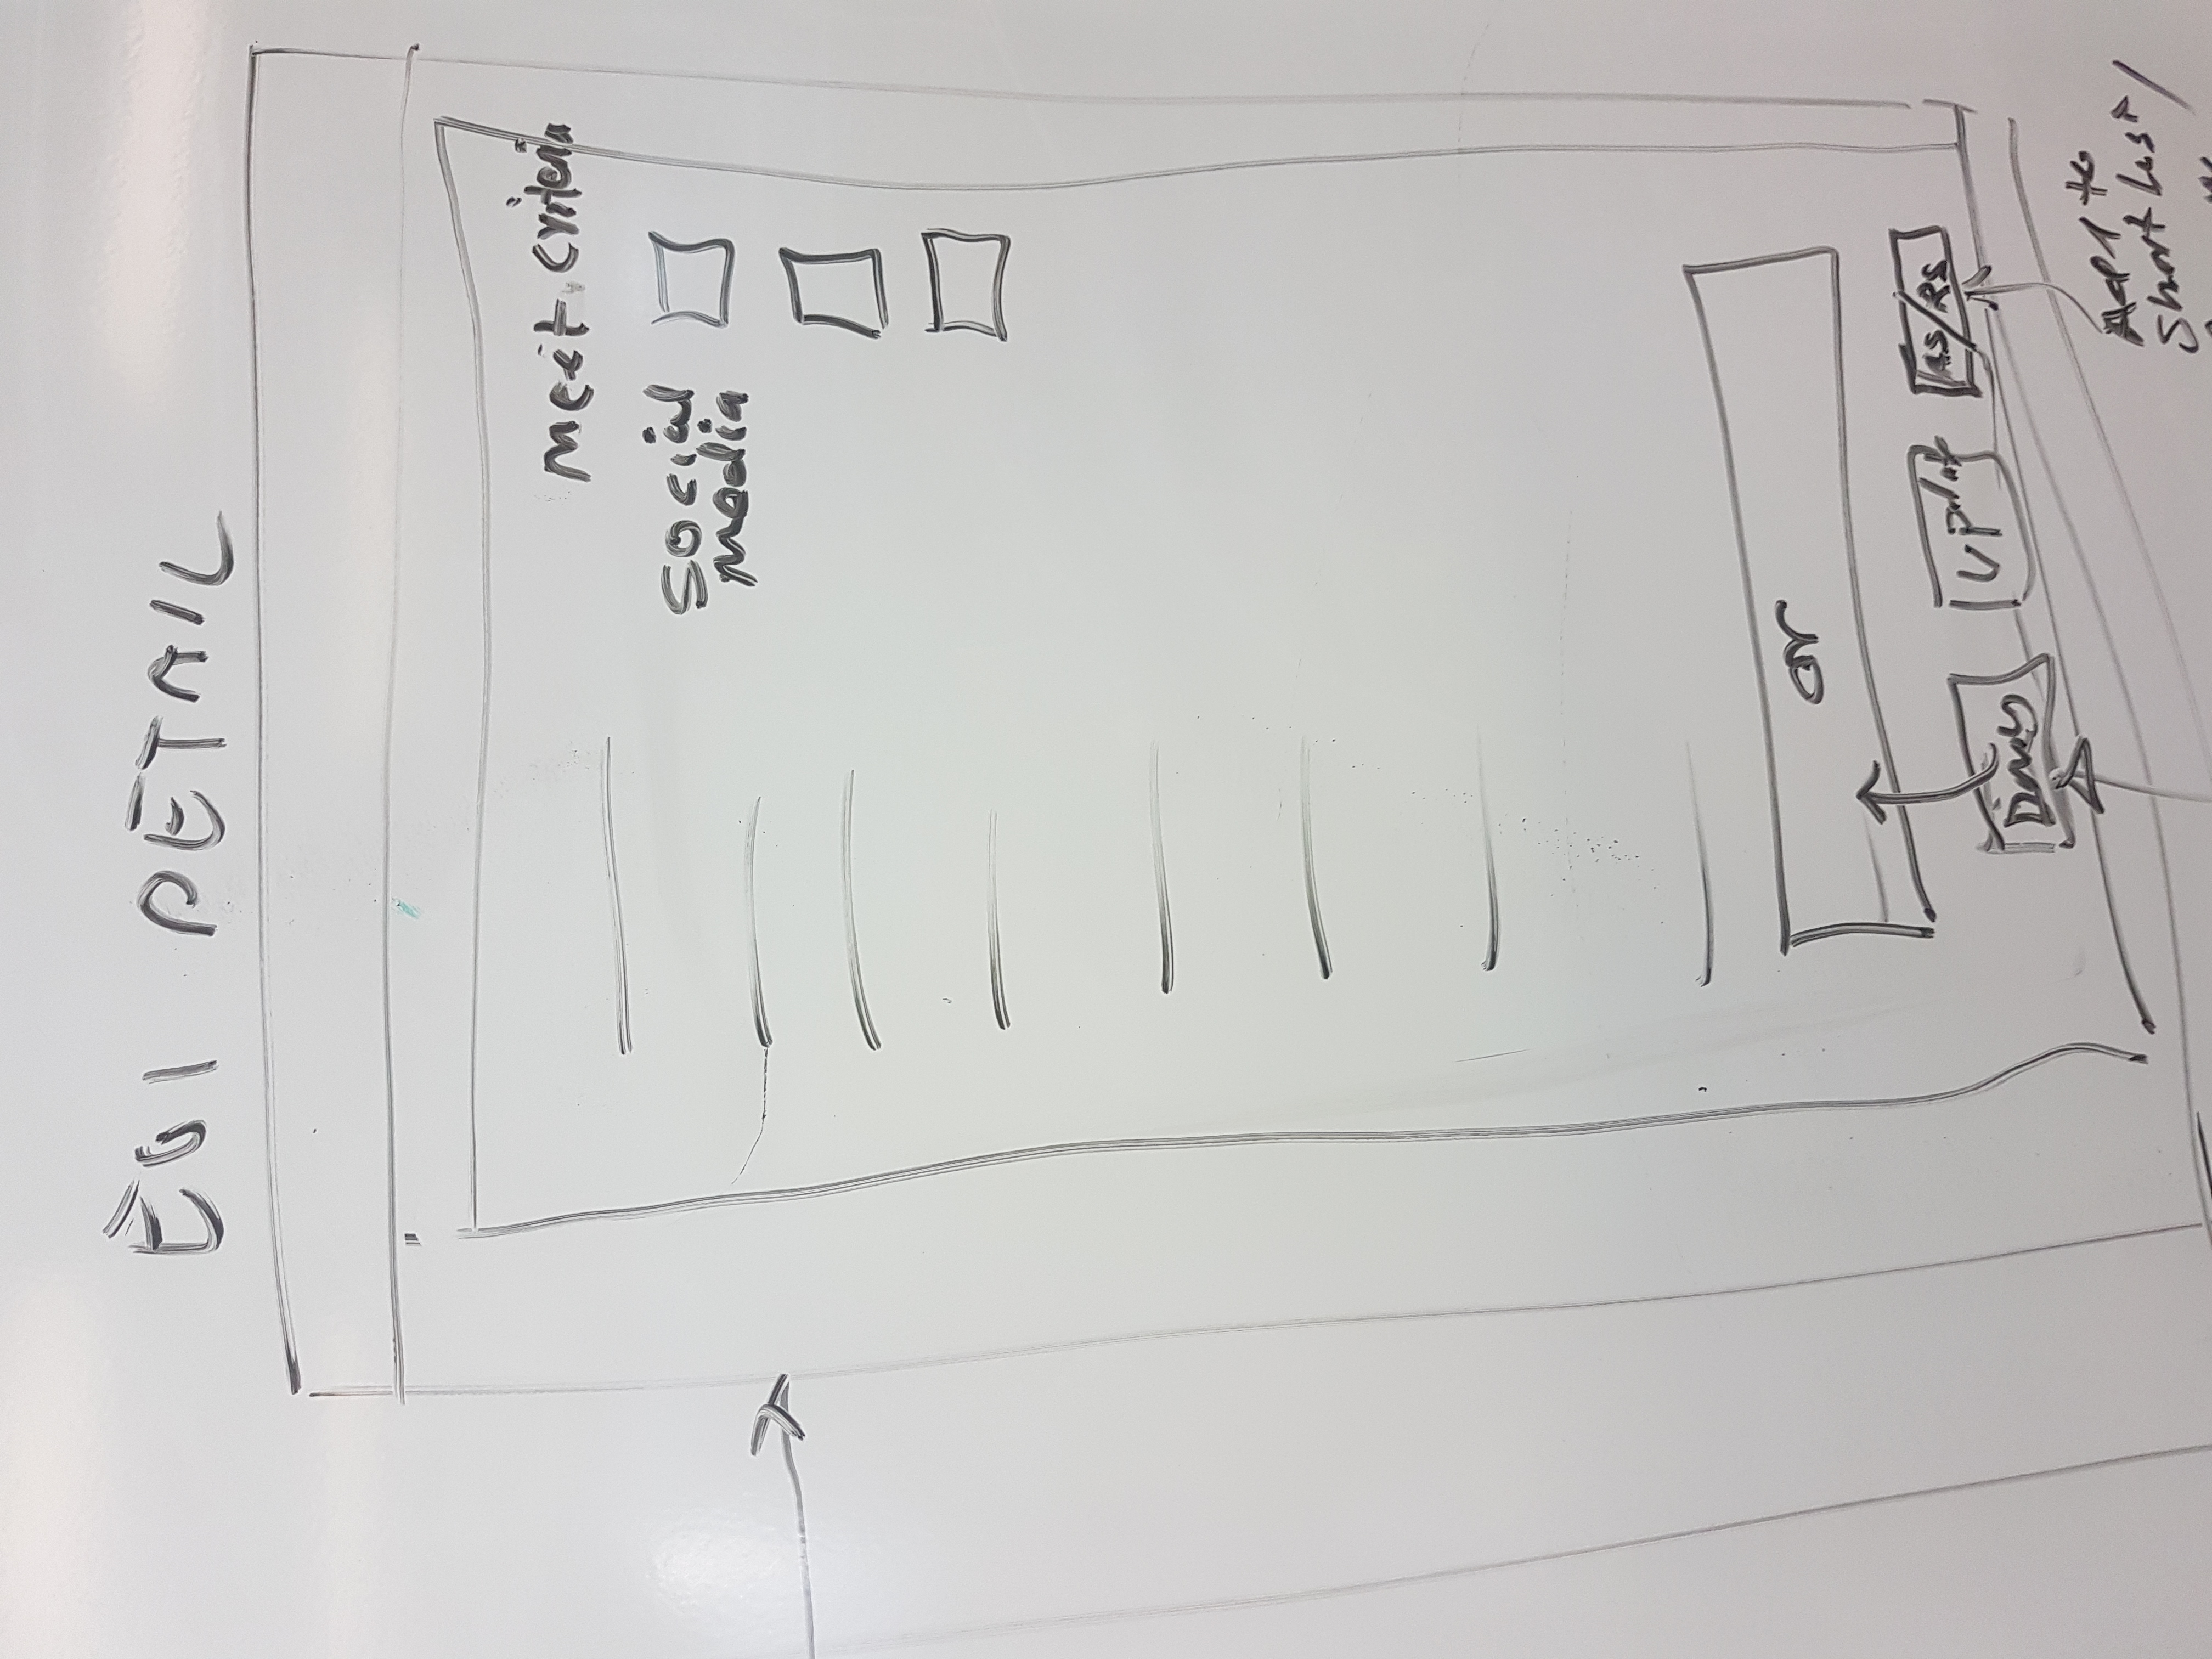 EOI DETAIL
meet criteria
social
media
or
Deny
Update
AS/RS
Add to
Short List /